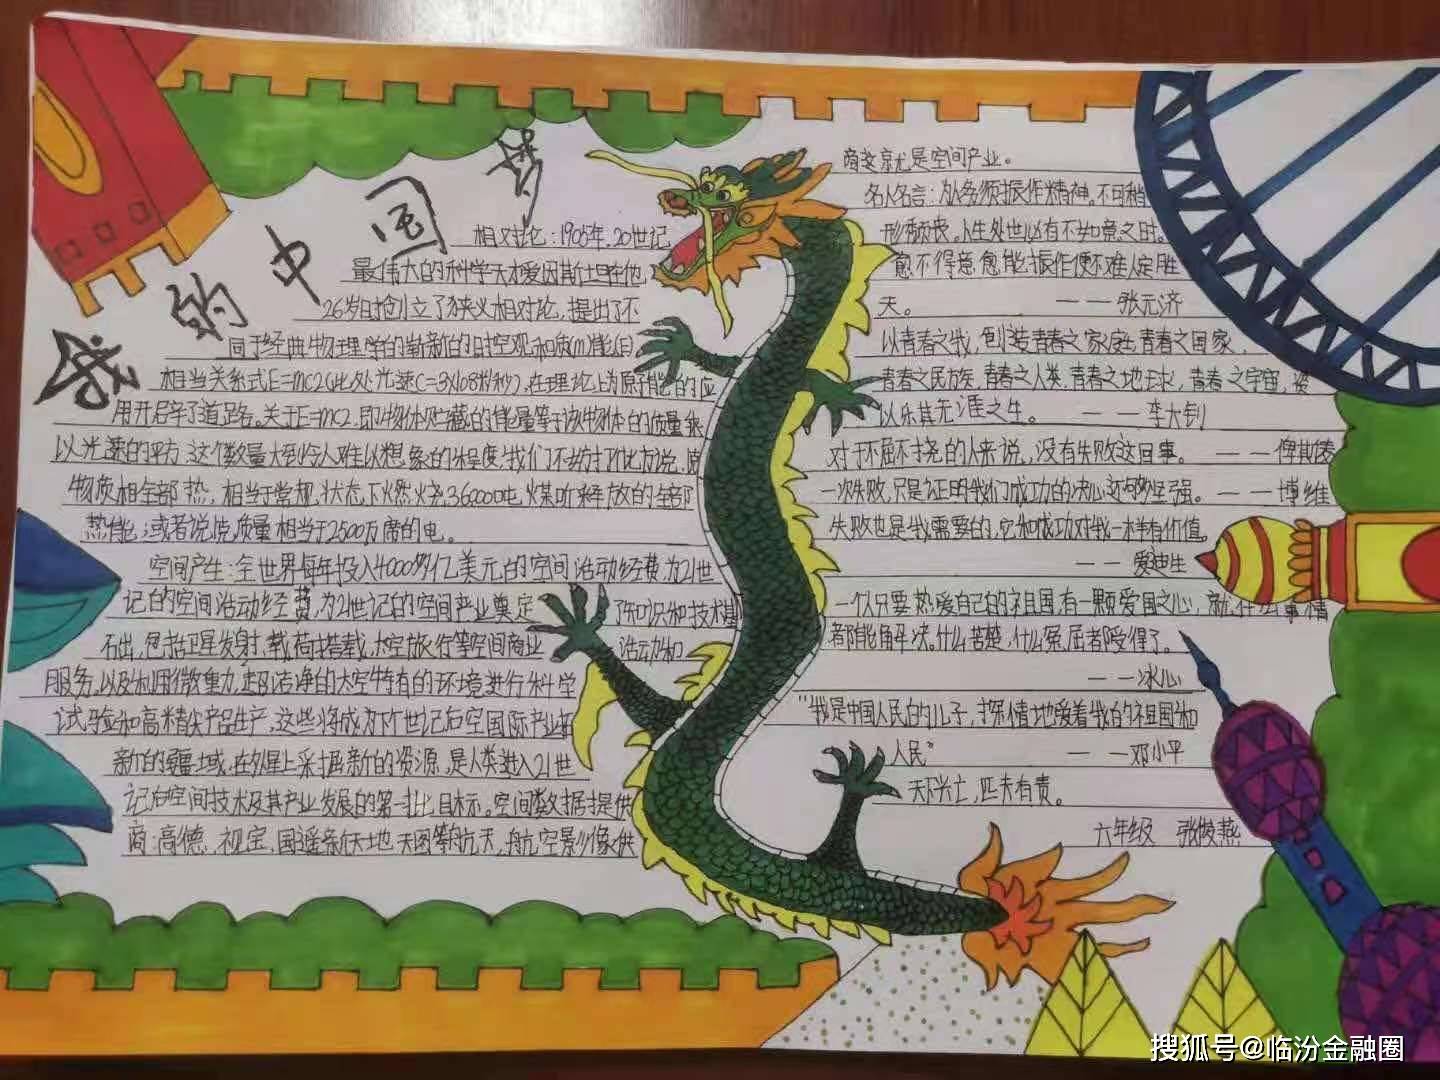 我的中国梦
相对论：1905年，20世纪
最伟大的科学天才爱因斯坦在他
26岁时创立了狭义相对论，提出了不
同于经典物理学的崭新的时空观和质(m)能(E)
相当关系式E=mc2(此处光速C=3×108米/秒)，在理论上为原子能的应
用开启辟了道路。关于E=mc2，即物体贮藏的能量等于该物体的质量乘
以光速的平方，这个数量大到令人难以想象的程度，我们不妨打个比方说，
物质相全部热，相当于常规状态下燃烧36000吨煤所释放的全部
热能；或者说质量相当于2500万度的电。
空间产生：全世界每年投入4000多亿美元的空间活动经费为21世
记的空间活动经费，为21世记的空间产业奠定了知识和技术基
石出，包括卫星发射，载荷搭载，太空旅行等空间商业活动和
服务，以及利用微重力，超洁净的太空特有的环境进行科学
试验和高精尖产品生产，这些将成为下个世记后空国际产业
新的疆域，在外星上采掘新的资源，是人类进入21世
记后空间技术及其产业发展的第一批目标。空间数据提供
商：高德，视宝，国遥新天地，天图等航天，航空影像供
商这就是空间产业。
名人名言：人必须振作精神，不可稍
形颓丧。人生处世必有不如意之时。
愈不得意，愈能振作便不难人定胜
天。 ——张元济
以青春之我，创造青春之家庭，青春之国家，
青春之民族，青春之人类，青春之地球，青春之宇宙，资
以乐其无涯之生。 ——李大钊
对于不屈不挠的人来说，没有失败这回事。 ——俾斯麦
一次失败，只是证明我们成功的决心还够坚强。 ——博维
失败也是我需要的，它和成功对我一样有价值。
——爱迪生
一个人只要热爱自己的祖国，有一颗爱国之心，就什么事情
都能解决。什么苦楚，什么冤屈者受得了。
——冰心
“我是中国人民的儿子，我深情地爱着我的祖国和
人民” ——邓小平
天下兴亡，匹夫有责。
六年级 张俊燕
搜狐号@临汾金融圈